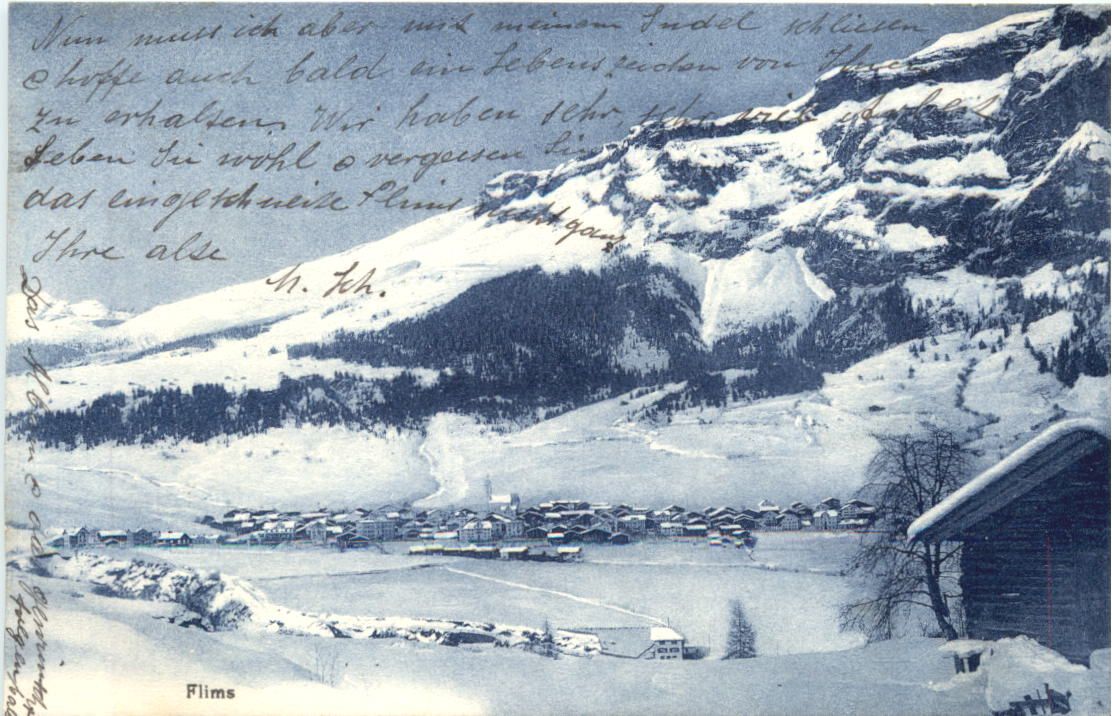 Nun muss ich aber mit meinem Sudel schliesen
& hoffe auch bald ein Lebenszeichen von Ihnen
zu erhalten. Wir haben sehr, sehr viel Arbeit
Leben Sie wohl & vergessen Sie
das eingeschneite Flims nicht ganz
Ihre alse
M. Sch.
Das
Flims